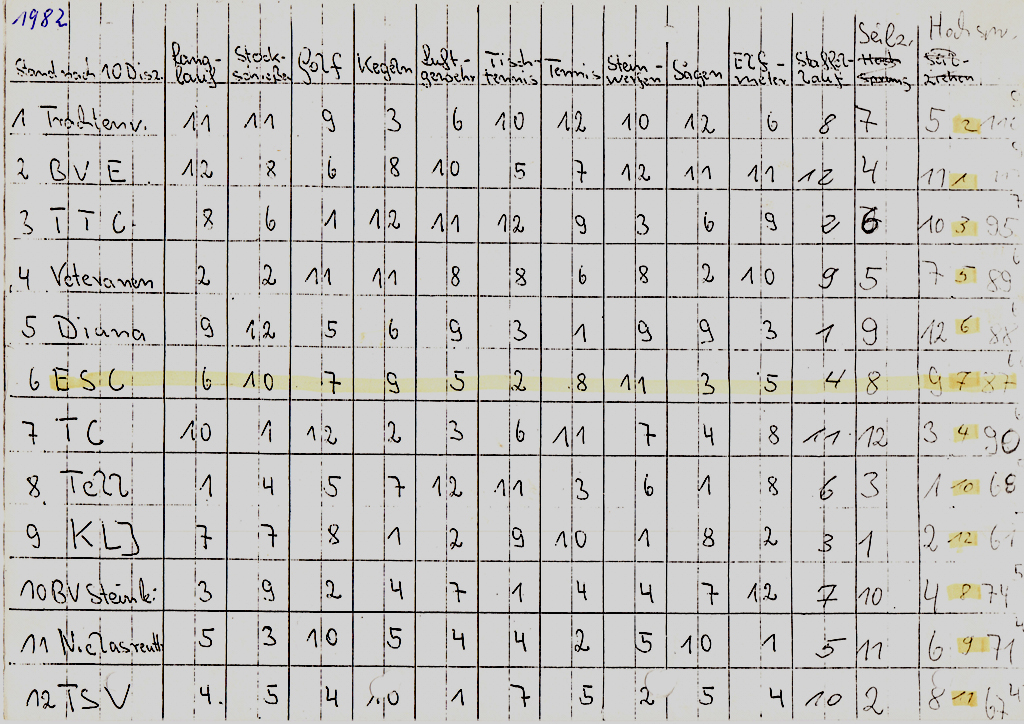 1982
Seilz. Hochspr.
Stand nach 10 Disz. Lang-lauf Stock-schießen Golf Kegeln Luft-gewehr Tisch-tennis Tennis Stein-werfen Sägen Elf-meter Staffel-lauf Hoch Sprung Seil-ziehen
1 Trachtenv. 11 11 9 3 6 10 12 10 12 6 8 7 5 2
2 BVE 12 8 6 8 10 5 7 12 11 11 12 4 11 1
3 TTC. 8 6 1 12 11 12 9 3 6 9 2 6 10 3 95
4 Veteranen 2 2 11 11 8 8 6 8 2 10 9 5 7 5 89
5 Diana 9 12 5 6 9 3 1 9 9 3 1 9 12 6 88
6 ESC 6 10 7 9 5 2 8 11 3 5 4 8 9 7 87
7 TC 10 1 12 2 3 6 11 7 4 8 11 12 3 4 90
8. Tell 1 4 5 7 12 11 3 6 1 8 6 3 1 10 68
9 KLJ 7 7 8 1 2 9 10 1 8 2 3 1 2 12 61
10 BV Steink. 3 9 2 4 7 1 4 4 7 12 7 10 4 8 74
11 Niclasreuth 5 3 10 5 4 4 2 5 10 1 5 11 6 9 71
12 TSV 4. 5 4 10 1 7 5 2 5 4 10 2 8 11 67